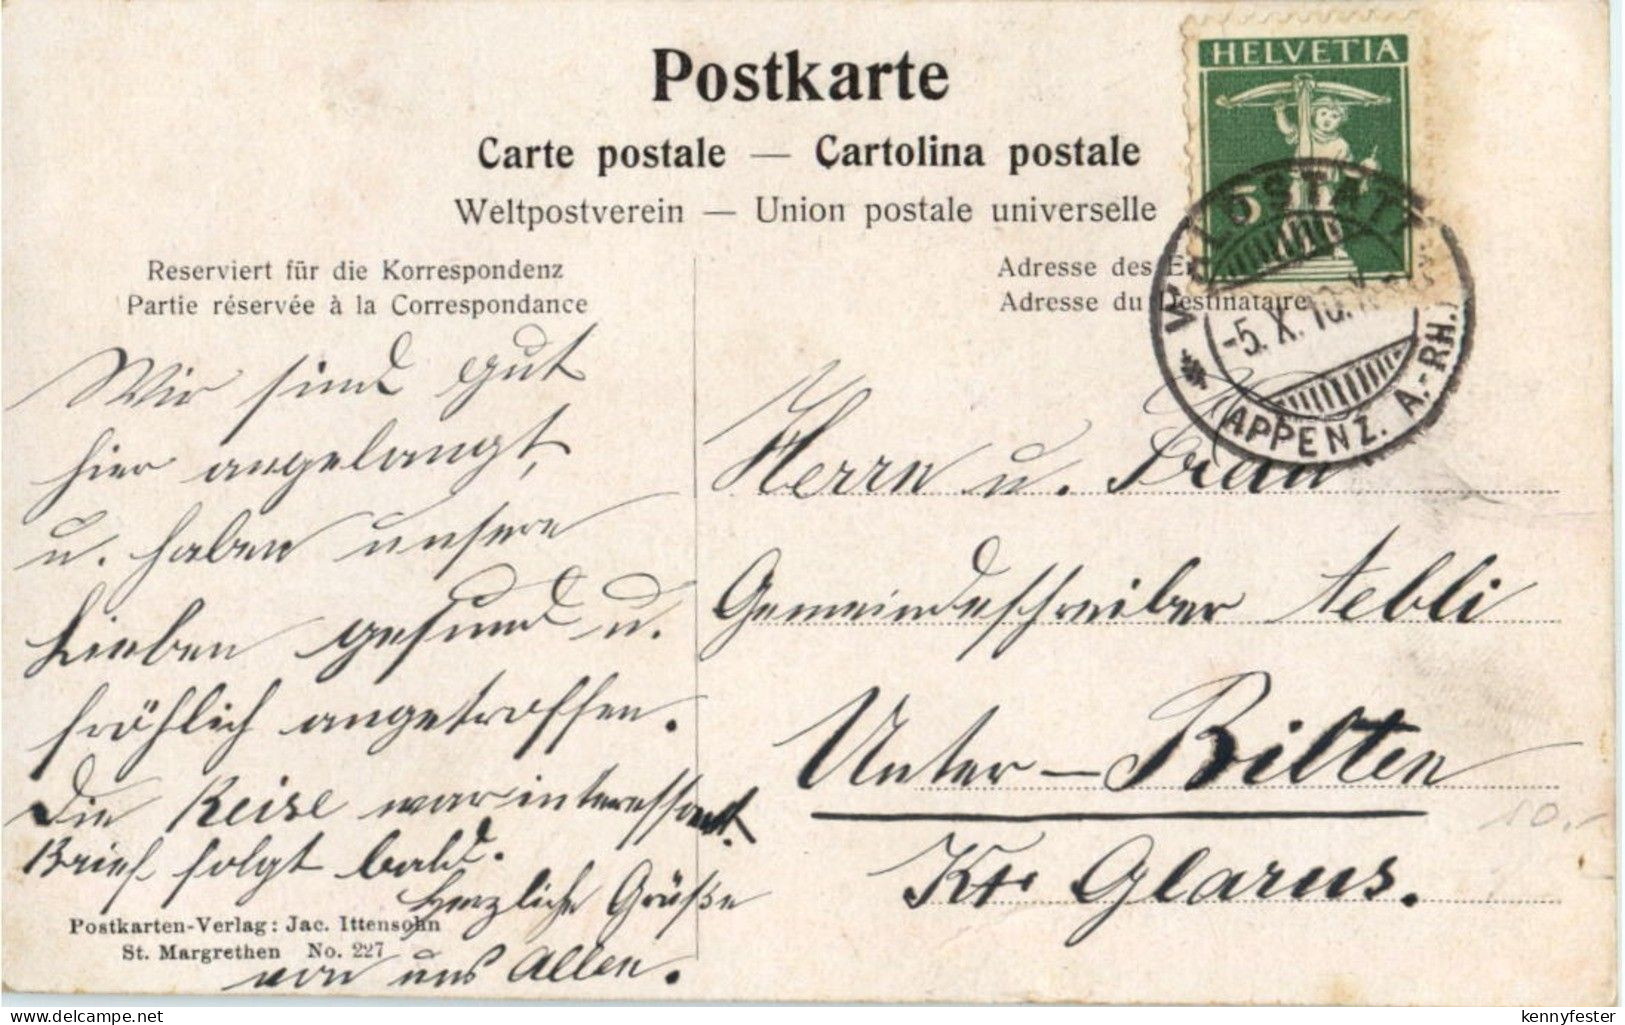 Postkarte
Carte postale — Cartolina postale
Weltpostverein — Union postale universelle
HELVETIA
5
WALDSTATT
-5. X. 10.
(APPENZ. A.-RH.)
Reserviert für die Korrespondenz
Partie réservée à la Correspondance
Adresse des E
Adresse du Destinataire
Wir sind gut
hier angelangt,
u. haben unsere
Lieben gesund u.
fröhlich angetroffen.
Die Reise war interessant.
Brief folgt bald.
Herzliche Grüße
von uns Allen.
Herrn u. Frau
Gemeindeschreiber Aebli
Unter-Bilten
Kt. Glarus.
10.-
Postkarten-Verlag: Jac. Ittensohn
St. Margrethen No. 227
kennyfester